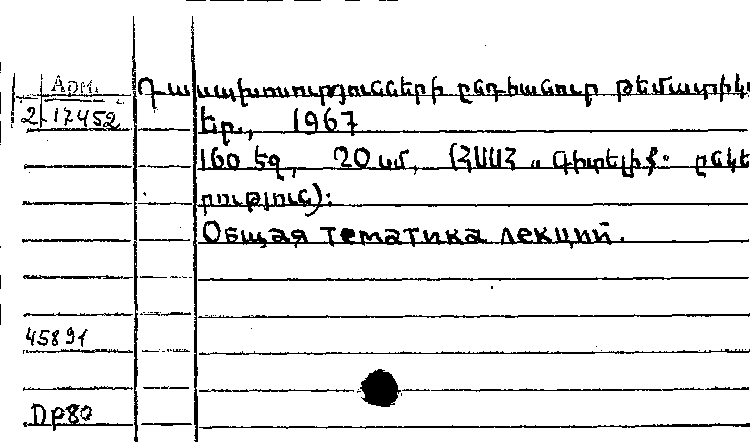 Арм. Դասախոսությունների ընդհանուր թեմատիկ
2-17452 Եր., 1967
160 եջ, 20 սմ, (ՀՍՍՀ „ Գիտելիք" ընկե
րություն)։
Общая тематика лекций.
45891
Dp80